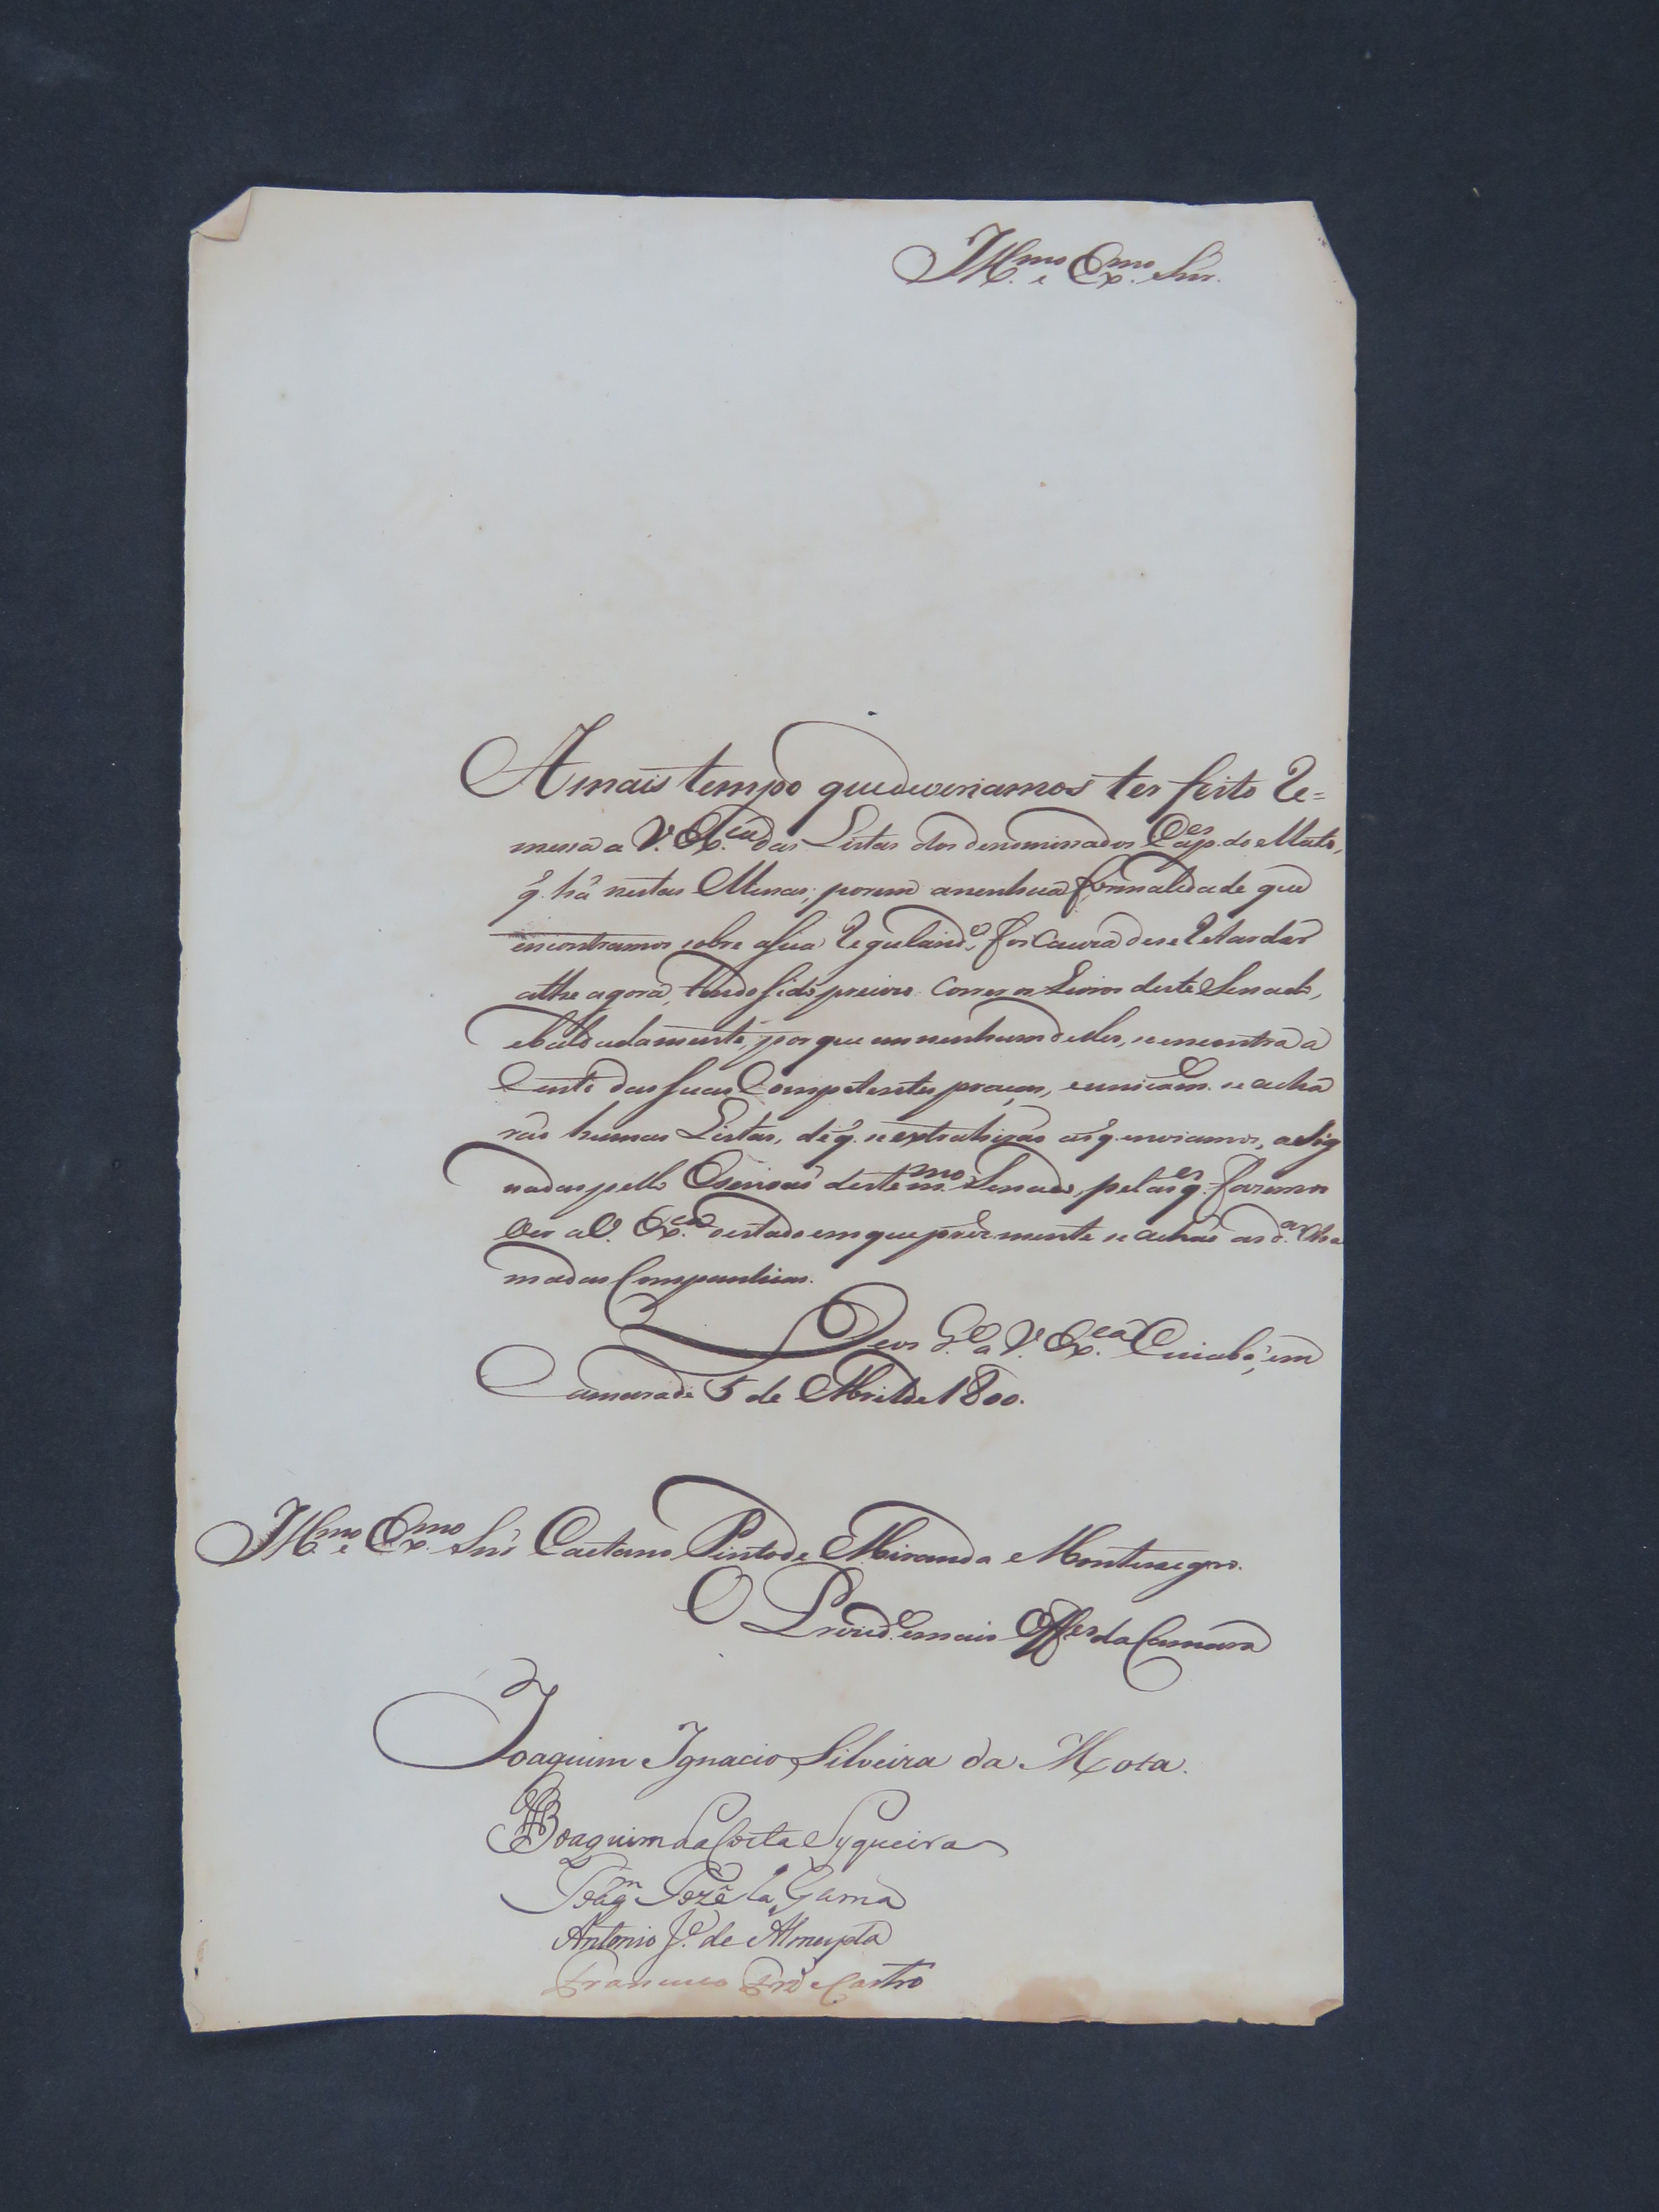 Ill.mo e Ex.mo Snr.
A mais tempo que deveriamos ter feito Re=
messa a V. Ex.cia das Listas dos denominados Cap.es do Mato,
q. há nestas Minas; porem a nenhua formalidade que
encontramos sobre a sua Regularid.e foi Causa de se Retardar
athe agora, tendo sido preciso Correr os Livros deste Senado,
e baldadamente, por que em nenhum delles, se encontra a
sento das suas Competentes praças, e unicam.e se acha
rão humas Listas, de q. se extrahirão as q. enviamos, asig
nadas pello Escrivão deste m.mo Senado, pelas q.es faremos
ver a V. Ex.cia o estado em que prez.e mente se achão as d.as cha
madas Companhias.
Deos G.e a V. Ex.cia Cuiabá, em
Camara de 5 de Abril de 1800.
Ill.mo e Ex.mo Snr. Caetano Pinto de Miranda Montenegro.
O Prezid.e e mais Off.es da Camara
Joaquim Ignacio Silveira da Mota.
Joaquim da Costa Syqueira
Joaq.m Jozé da Gama
Antonio J.e de Almeyda
Francisco de Castro